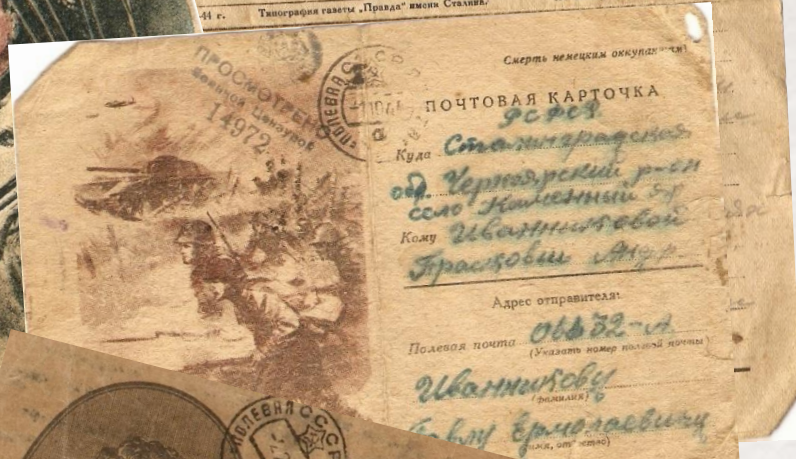 44 г. Типография газеты „Правда" имени Сталина.
Смерть немецким оккупантам!
ПРОСМОТРЕНО
Военной Цензурой
14972
ПОЛЕВАЯ СССР
ПОЧТОВАЯ КАРТОЧКА
РСФСР
Куда Сталинградская
обл. Черноярский р-он
село Каменный Яр
Кому Иванниковой
Прасковьи Андр
Адрес отправителя:
Полевая почта
(Указать номер полевой почты)
Иванникову
(фамилия)
Павлу Ермолаевичу
имя, отчество)
ПОЛЕВАЯ СССР